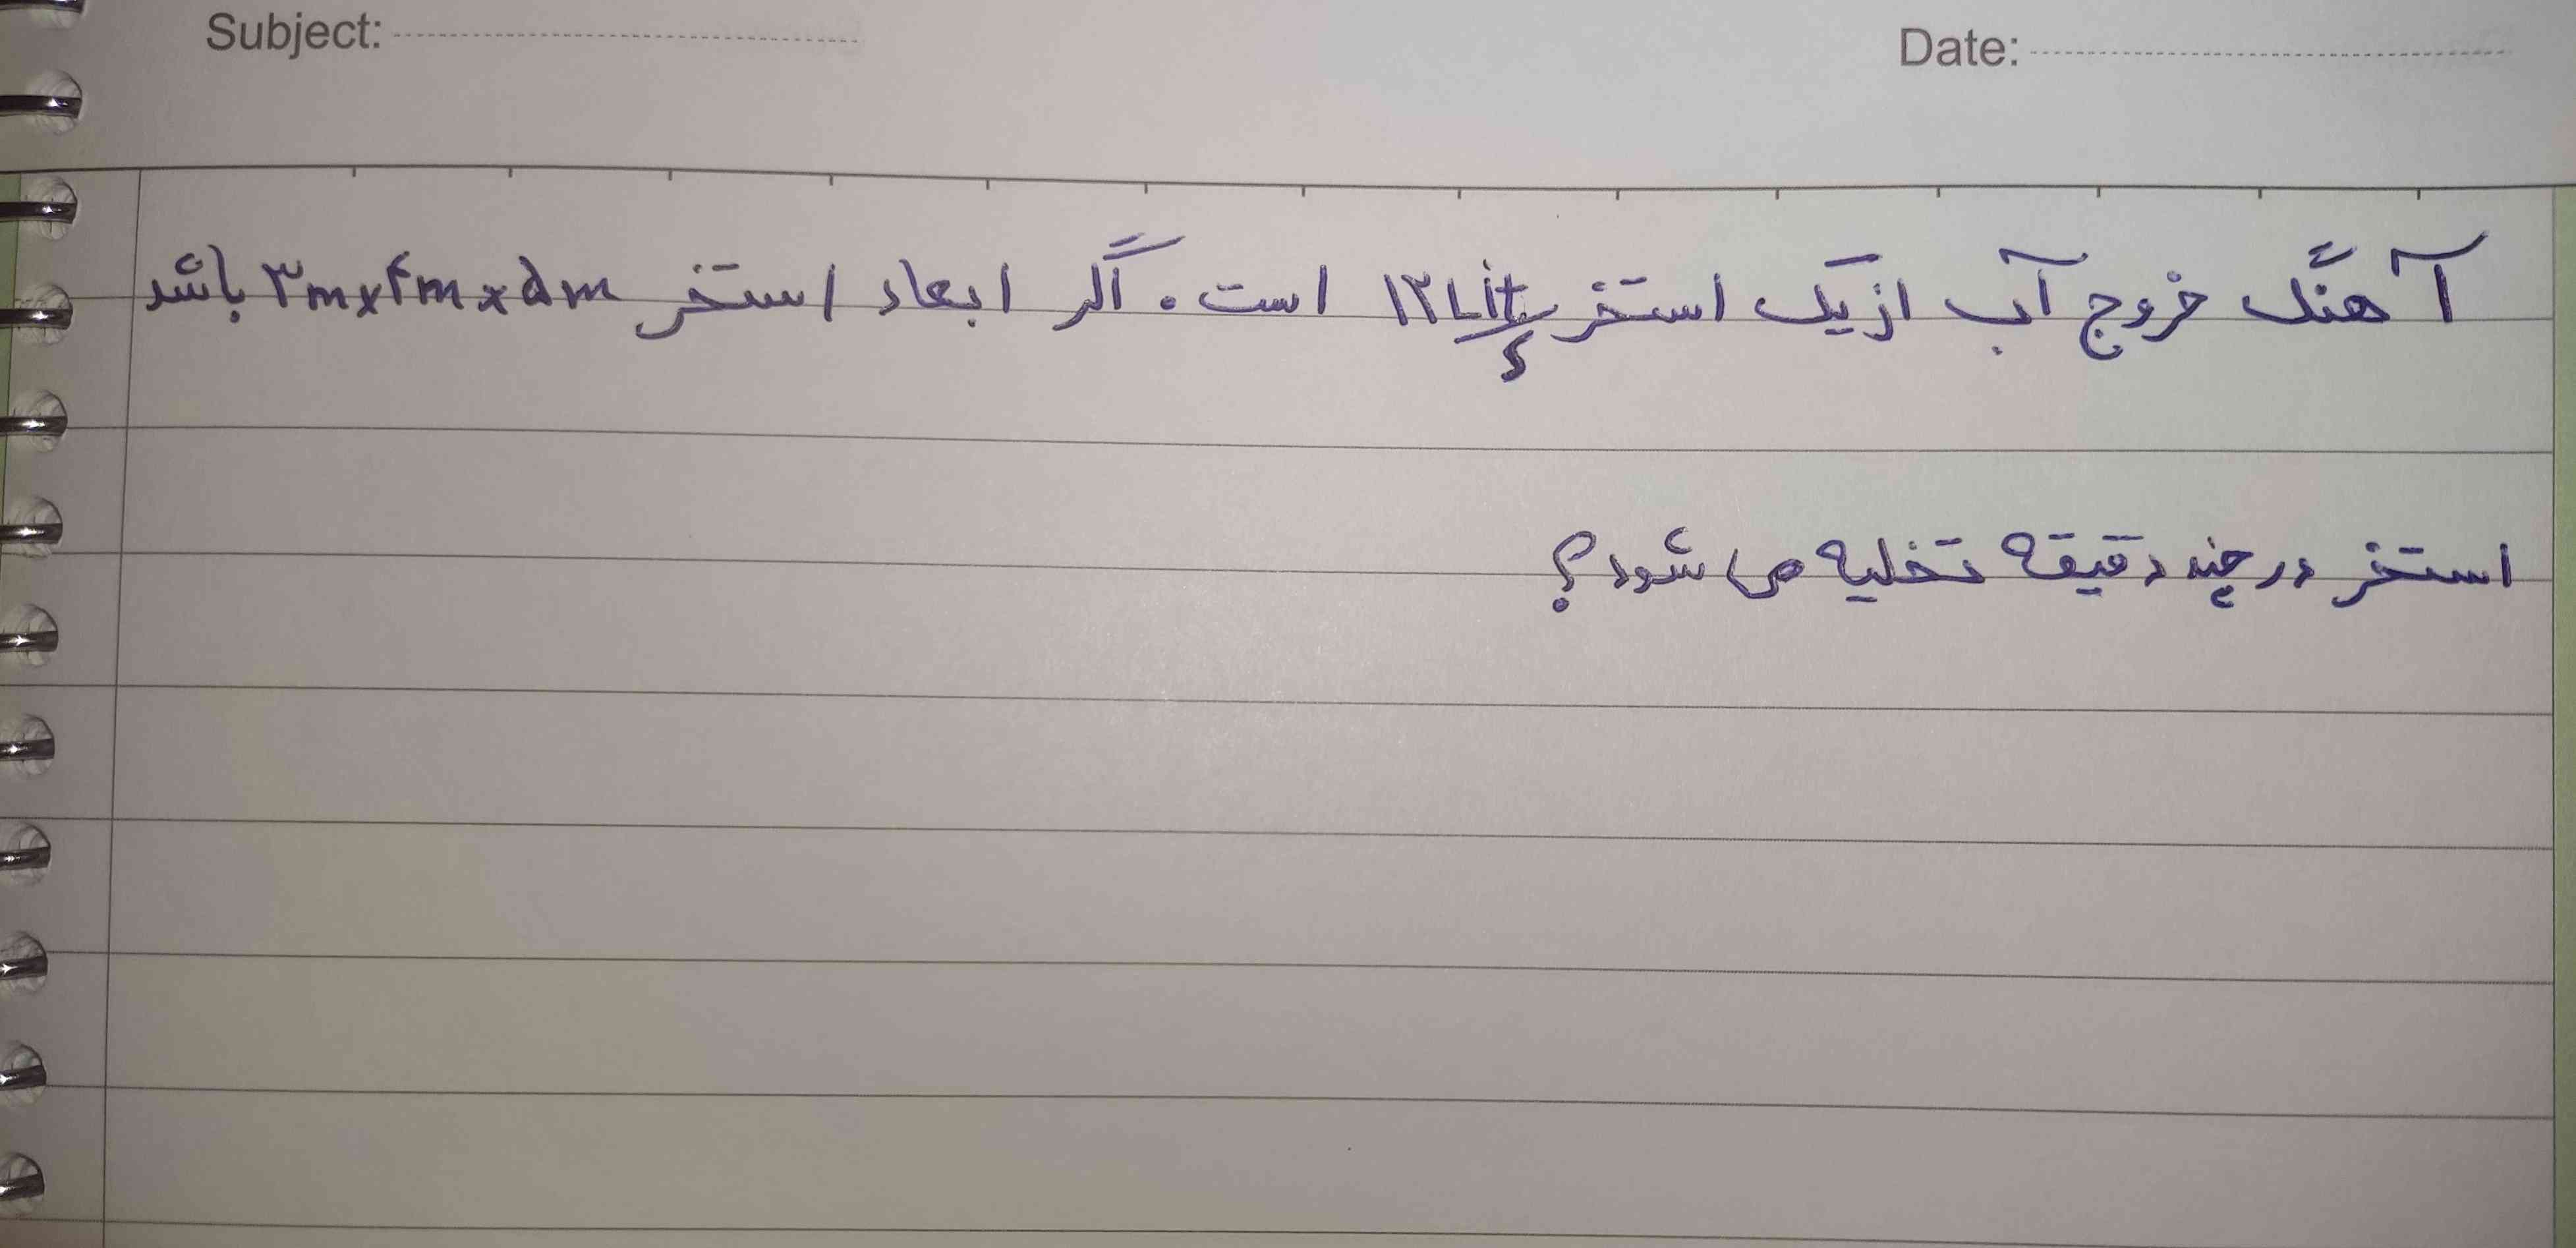 Subject: Date:
آهنگ خروج آب از یک استخر ۱۲ Lit/s است. اگر ابعاد استخر ۳m×۴m×۵m باشد
استخر در چند دقیقه تخلیه می شود؟